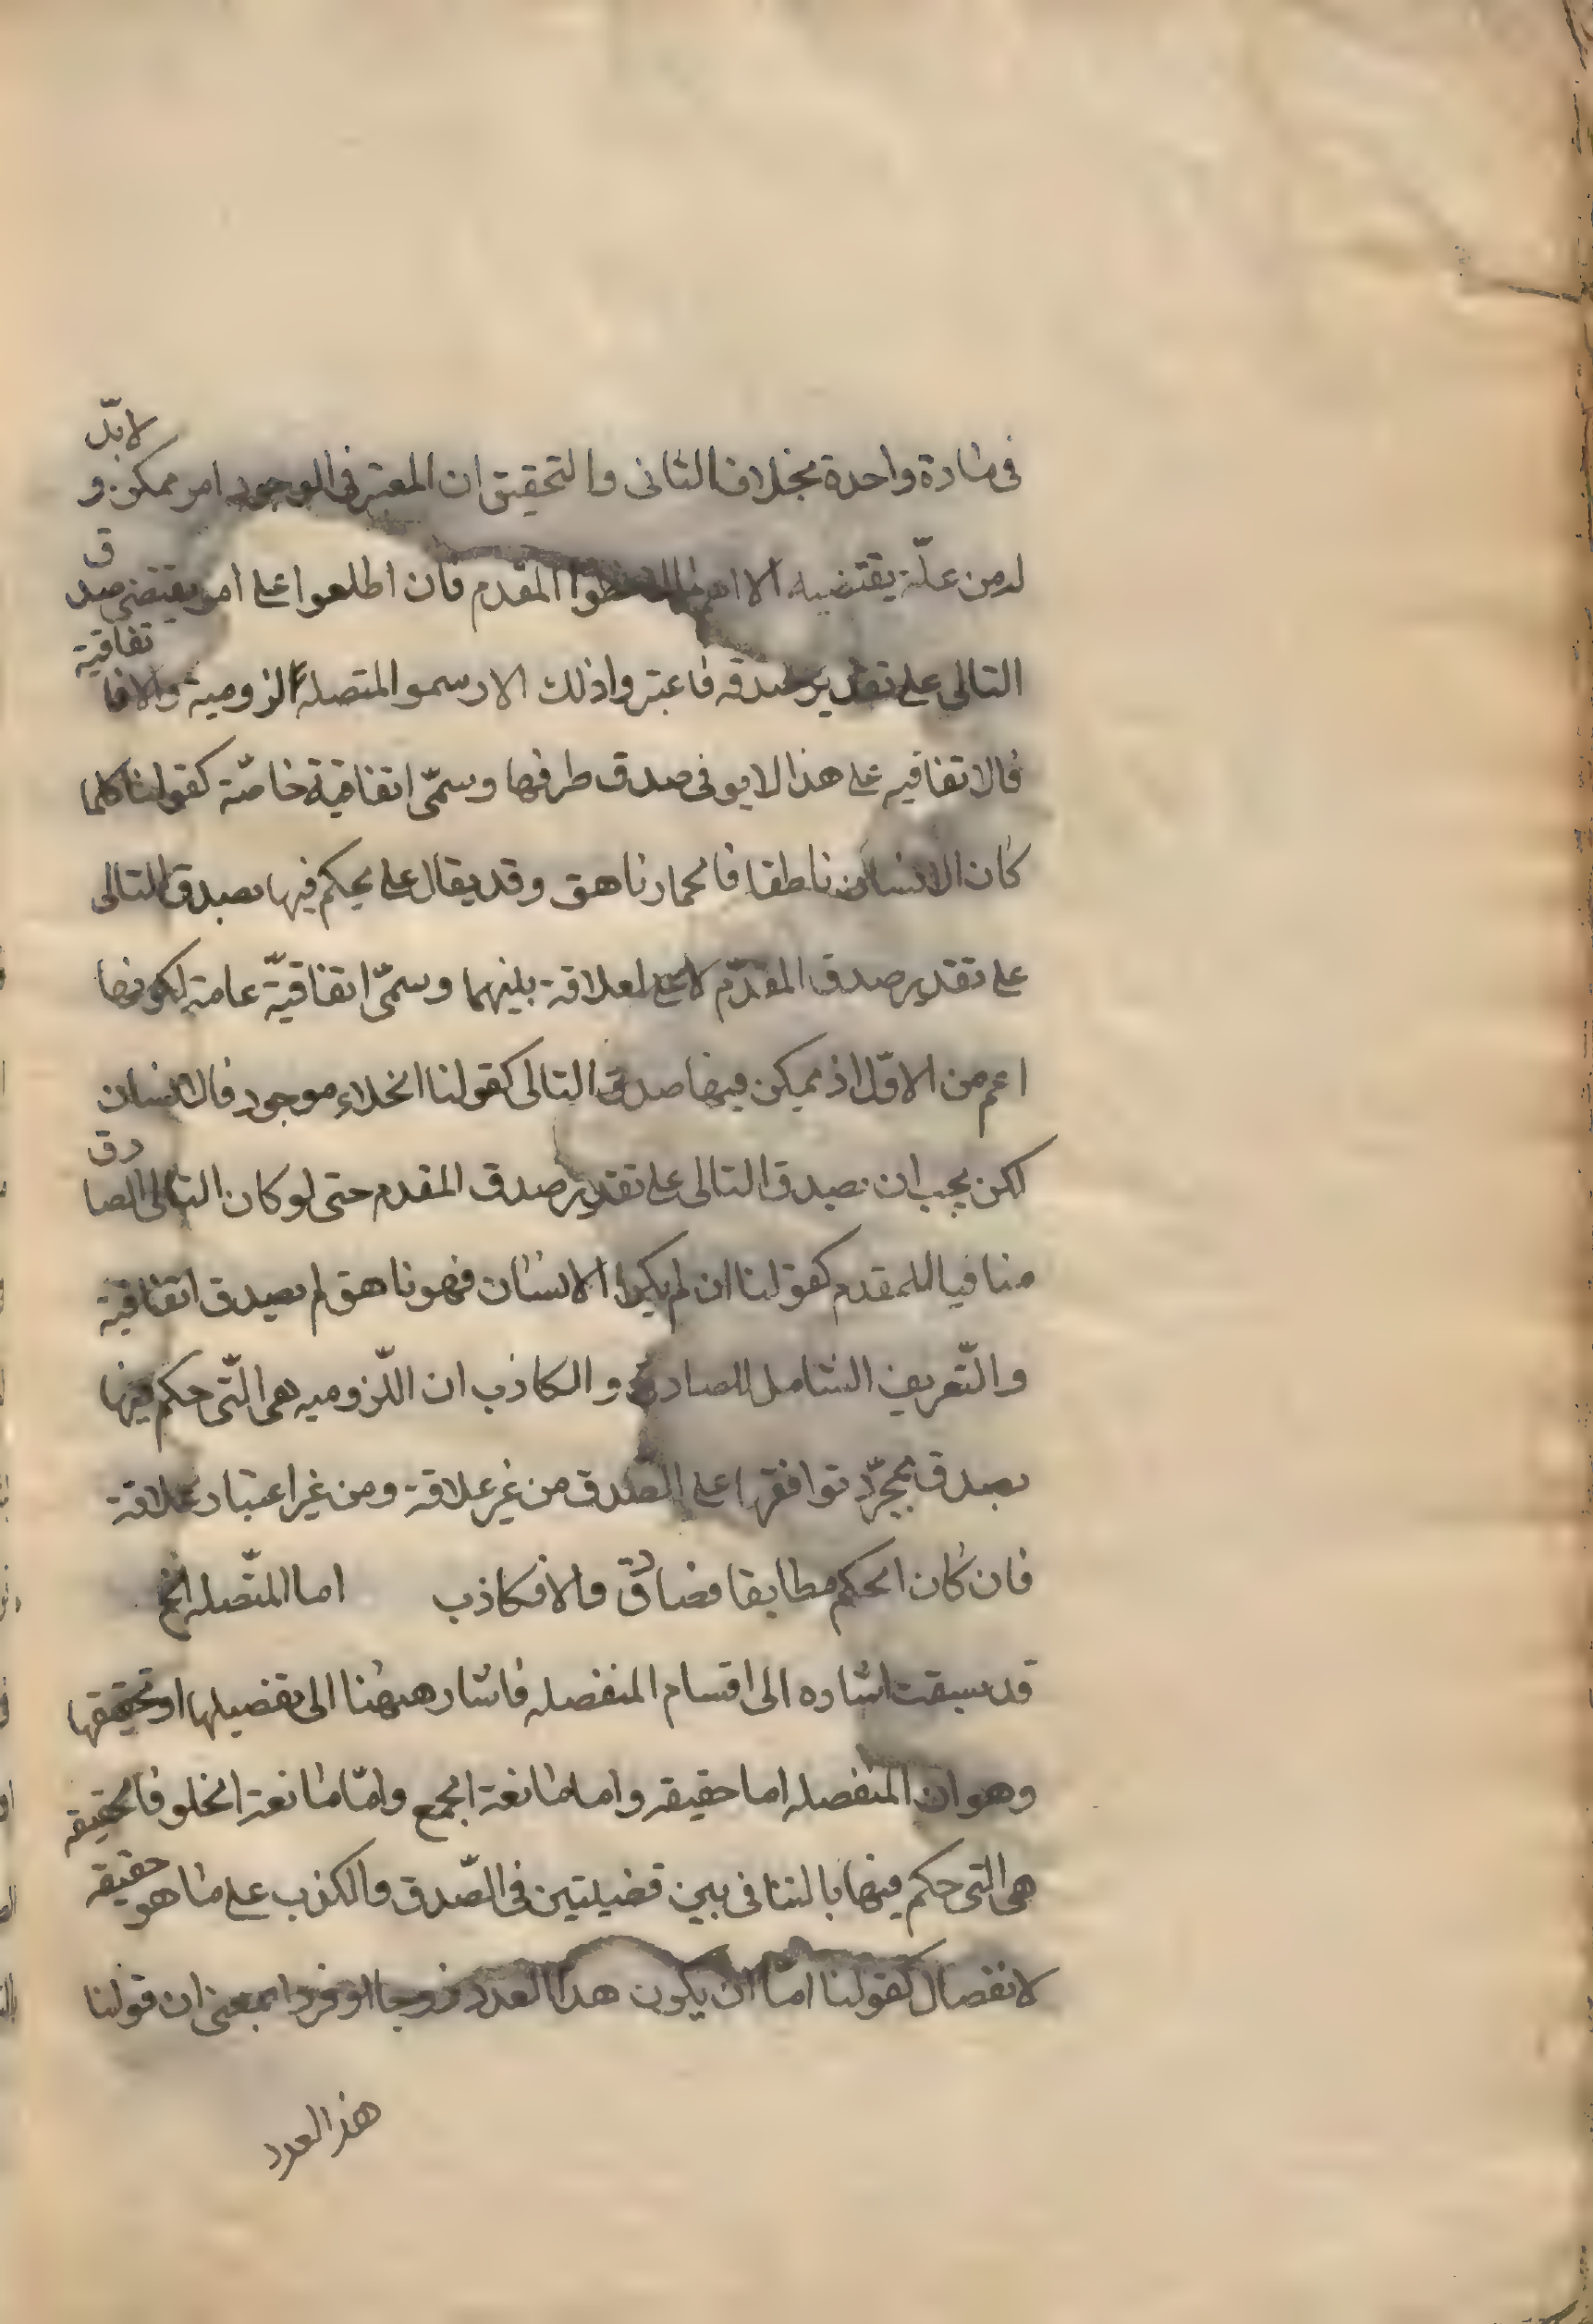 فى مادة واحدة بخلاف الثانى والتحقيق ان المعتبر فى الوجود امر ممكن ولابدّ
له من علّة يقتضيه الا لاحظوا المقدم فان اطلعوا على امر يقتضى صدق
التالى على تقدير صدقه فاعتبروا ذلك الار سموا المتصلة لزومية والافاتفاقية
فالاتفاقيه على هذا لا يو فى صدق طرفيها وسمّى اتفاقية خاصّة كقولنا كلما
كان الانسان ناطقا فالحمار ناهق وقد يقال على يحكم فيها بصدق التالى
على تقدير صدق المقدّم لا لعلاقة بينهما وسمّى اتفاقيّة عامة لكونها
اعم من الاوّل اذ يمكن فيها صدق التالى كقولنا الخلاء موجود فالانسان
لكن يجب ان يصدق التالى على تقدير صدق المقدم حتى لو كان التالى الصادق
منافيا للمقدم كقولنا ان لم يكن الانسان فهو ناهق لم يصدق اتفاقية
والتّعريف الشامل للصادق والكاذب ان اللّزوميه هى الّتى حكم فيها
بصدق بمجرّد توافقها على الصدق من غير علاقة ومن غير اعتبار علاقة
فان كان الحكم مطابقا فصادق والا فكاذب اما المتّصله الخ
قد سبقت اشاره الى اقسام المنفصله فاشار ههنا الى تفصيلها او تحقيقها
وهو ان المنفصله اما حقيقه واما مانعة الجمع وامّا مانعة الخلو فالحقيقه
هى التى حكم فيها بالتنافى بين قضيتين فى الصّدق والكذب على ما هو حقيقه
لانفصال كقولنا امّا ان يكون هذا العدد زوجا او فردا بمعنى ان قولنا
هذا العدد